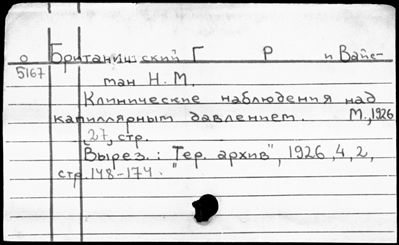 о Британишский Г Р и Вайс-
5167 ман Н.М.
Клинические наблюдения над
капиллярным давлением. М., 1926
27, стр.
Вырез.: "Тер. архив", 1926, 4, 2,
стр. 148-174.